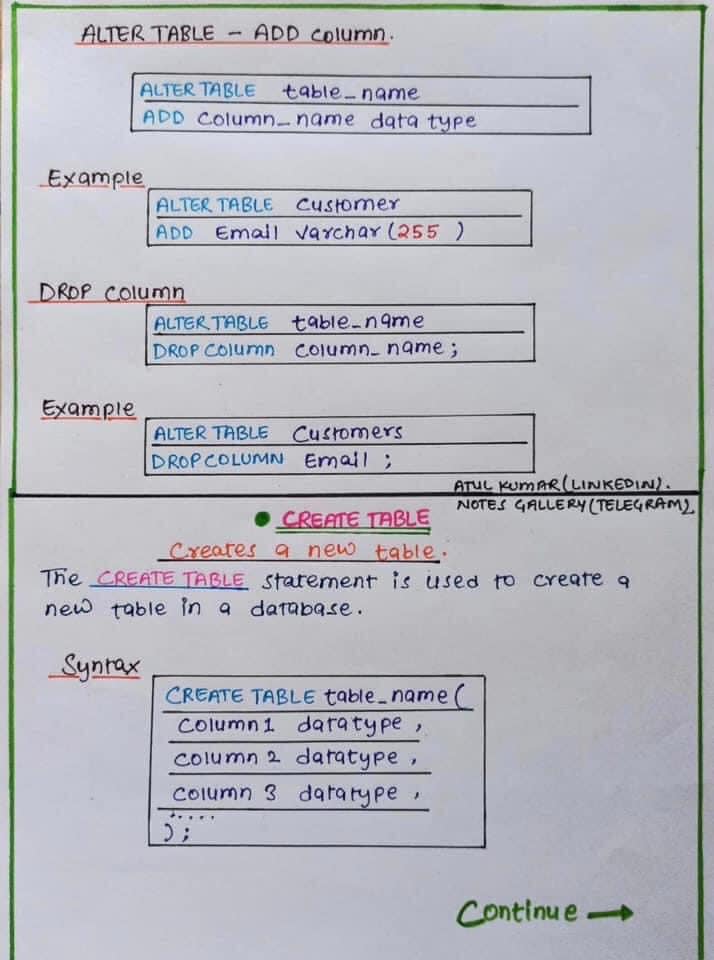 ALTER TABLE - ADD Column.
ALTER TABLE table_name
ADD Column_name data type
Example
ALTER TABLE Customer
ADD Email Varchar (255 )
DROP Column
ALTER TABLE table_name
DROP Column Column_name ;
Example
ALTER TABLE Customers
DROP COLUMN Email ;
ATUL KUMAR (LINKEDIN).
NOTES GALLERY (TELEGRAM)
CREATE TABLE
Creates a new table.
The CREATE TABLE statement is used to create a
new table in a database.
Syntax
CREATE TABLE table_name (
Column1 datatype ,
Column 2 datatype ,
Column 3 datatype ,
.....
);
Continue →